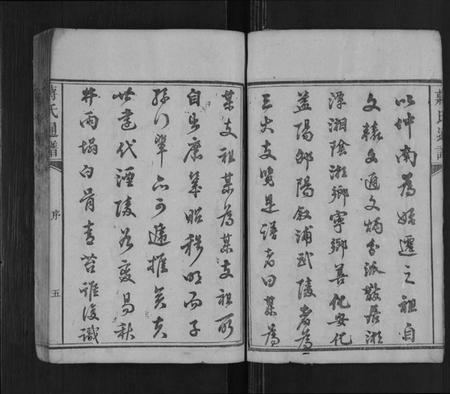 以仲南为始遷之祖自
文轅文通文炳分派散居湘
潭湘陰湘鄉寧鄉善化安化
益陽邵陽敘浦武陵者為
三大支覽是譜者曰某為
某支祖某為某支祖所
自出庶幾昭穆明而子
孫行輩亦可遞推矣夫
世遠代湮陵谷變易秋
井雨塌白骨青苔誰復識
蔣氏通譜
序
五